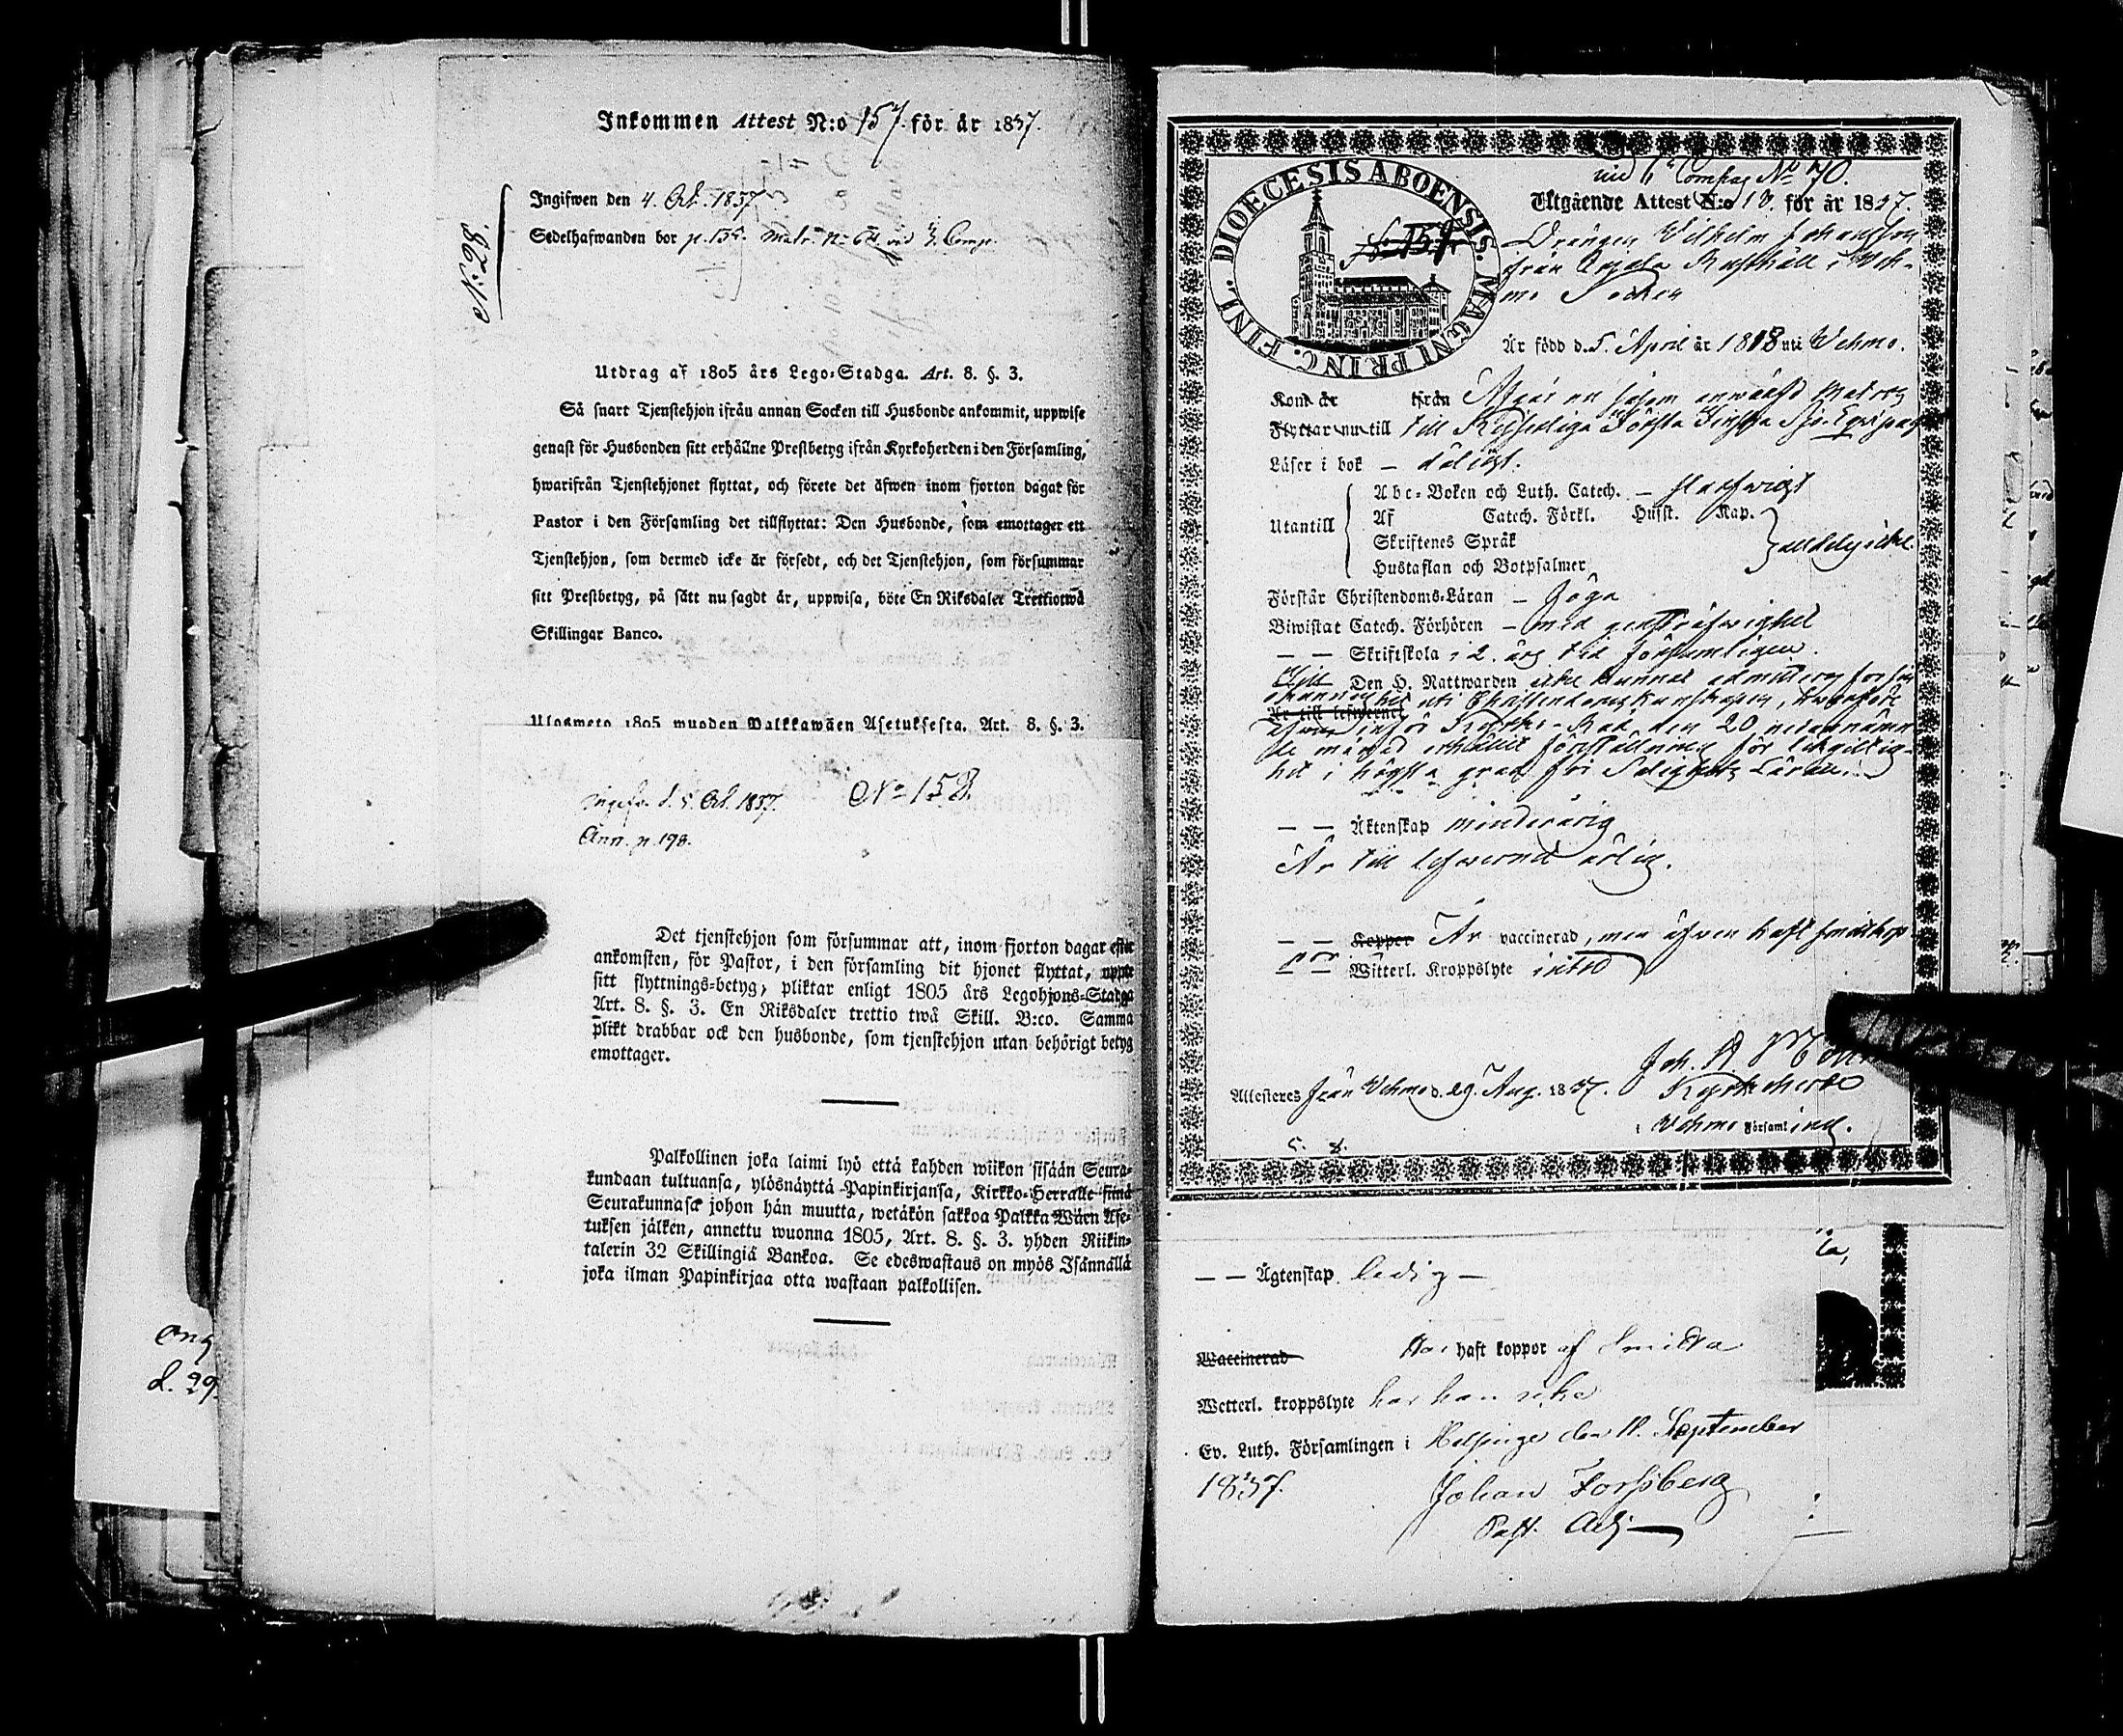 Inkommen Attest N:o 157. för år 1837.
Ingifwen den 4. Oct. 1837
Sedelhafwanden bor p. 155. Matr. N:o 64 vid 3. Comp.
N:28.
Utdrag af 1805 års Lego-Stadga. Art. 8. §. 3.
Så snart Tjenstehjon ifrån annan Socken till Husbonde ankommit, uppwise
genast för Husbonden sitt erhållne Prestbetyg ifrån Kyrkoherden i den Församling,
hwarifrån Tjenstehjonet flyttat, och förete det äfwen inom fjorton dagar för
Pastor i den Församling det tillflyttat: Den Husbonde, som emottager ett
Tjenstehjon, som dermed icke är försedt, och det Tjenstehjon, som försummar
sitt Prestbetyg, på sätt nu sagdt är, uppwisa, böte En Riksdaler Trettiotwå
Skillingar Banco.
Ulosmeto 1805 wuoden Palkkawäen Asetuksesta. Art. 8. §. 3.
Ingifv. d. 5. Oct. 1837. No 158.
Ann. p. 198.
Det tjenstehjon som försummar att, inom fjorton dagar efter
ankomsten, för Pastor, i den församling dit hjonet flyttat, uppte
sitt flyttnings-betyg, pliktar enligt 1805 års Legohjons-Stadga
Art. 8. §. 3. En Riksdaler trettio twå Skill. B:co. Samma
plikt drabbar ock den husbonde, som tjenstehjon utan behörigt betyg
emottager.
Palkollinen joka laimi lyö että kahden wiikon sisään Seura-
kundaan tultuansa, ylösnäyttä Papinkirjansa, Kirkko-Herralle siinä
Seurakunnasa johon hän muutta, wetäkön sakkoa Palkka Wäen Ase-
tuksen jälken, annettu wuonna 1805, Art. 8. §. 3. yhden Riikin-
talerin 32 Skillingiä Bankoa. Se edeswastaus on myös Isännällä
joka ilman Papinkirjaa otta wastaan palkollisen.
ong
d. 29.
vid 1a Comp. No 70.
Utgående Attest N:o 18. för år 1837.
DIOECESIS ABOENSIS. MAGNI PRINC. FINL.
157
Drängen Wilhelm Johansson
från Rusthåll i Weh-
mo Socken
Är född d. 5. April år 1818 uti Wehmo.
Kom år ifrån Afgår nu såsom antagen Matros
Flyttar nu till till Kejserliga Första Finska Sjö-Equipaget
Läser i bok – dåligt.
Abc-Boken och Luth. Catech. –
Utantill Af Catech. Förkl. Hufst. Kap.
Skriftenes Språk
Hustaflan och Botpsalmer
alldeles icke.
Förstår Christendoms-Läran – föga
Biwistat Catech. Förhören – med
– – Skriftskola i 2. års tid
Till Den H. Nattwarden icke kunnat admitteras för sin
okunnighet uti Christendomskunskapen, hwarföre
Är till lefwernet
äfwen inför Kyrko-Råd den 20 nedannämn-
de månad erhållit föreställning för likgiltig-
het i högsta grad för Salighets Läran.
– – Äktenskap minderårig
Är till lefwernet ärlig.
– – Kopper Är vaccinerad, men äfwen haft smittkop-
por
– – Witterl. Kroppslyte intet
Joh. H.
Attesteres från Wehmo d. 29. Aug. 1837. Kyrkoherde
i Wehmo Församling.
– – Ägtenskap ledig –
Waccinerad Har haft koppor af smitta
Wetterl. kroppslyte har han icke
Ev. Luth. Församlingen i Helsinge den 11. September
1837. Johan Forssberg
Past. Adj.